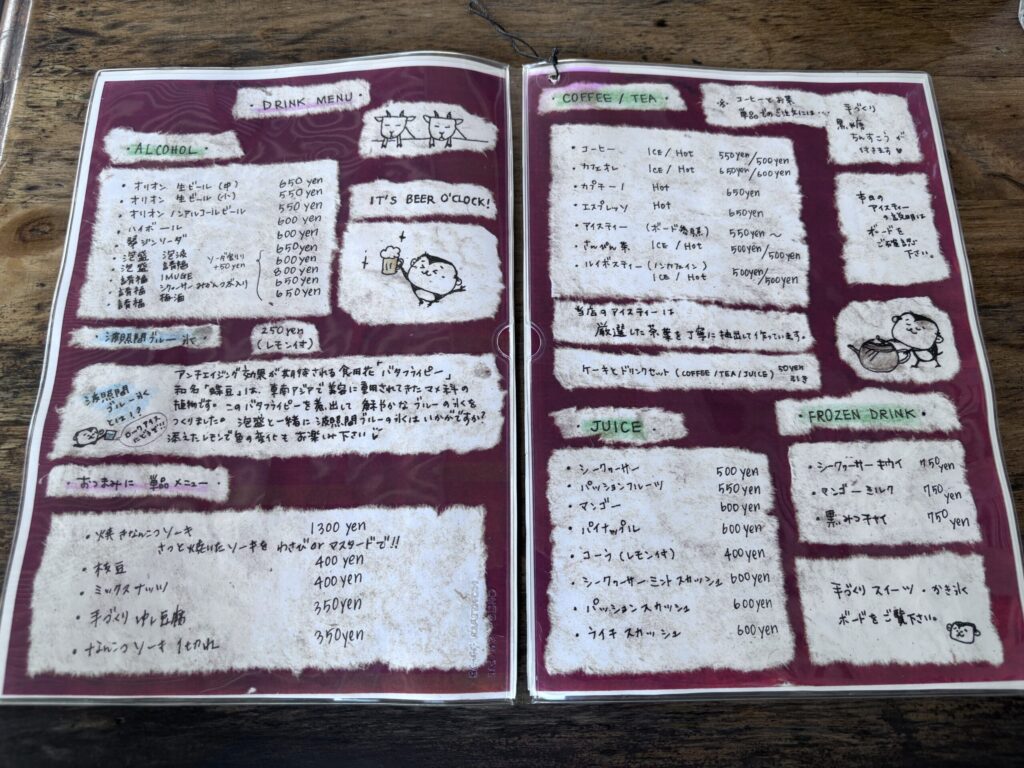 DRINK MENU
ALCOHOL
・オリオン 生ビール (中) 650 yen
・オリオン 生ビール (小) 550 yen
・オリオン ノンアルコールビール 550 yen
・ハイボール 600 yen
・翠ジンソーダ 600 yen
・泡盛 泡波 650 yen
・泡盛 請福 600 yen
・請福 IMUGE 800 yen
・請福 シークヮーサー 650 yen
・請福 梅酒 650 yen
ソーダ割り +50yen
IT'S BEER O'CLOCK!
波照間ブルー氷 250 yen
(レモン付)
波照間ブルー氷とは!?
アンチエイジング効果が期待される食用花「バタフライピー」
和名「蝶豆」は、東南アジアで美容に重用されてきたマメ科の
植物です。このバタフライピーを煮出して 鮮やかなブルーの氷を
つくりました。泡盛と一緒に波照間ブルーの氷はいかがですか?
添えたレモンで色の変化もお楽しみ下さい
おつまみに 単品メニュー
・焼きなんこつソーキ 1300 yen
さっと焼いたソーキを わさび or マスタードで!!
・枝豆 400 yen
・ミックスナッツ 400 yen
・手づくり ゆし豆腐 350 yen
・なんこつソーキ 1切れ 350 yen
COFFEE / TEA
※ コーヒーとお茶
単品でのご注文には…
手づくり
黒糖
ちんすこう が
付きます
・コーヒー ICE / Hot 550yen/500yen
・カフェオレ ICE / Hot 650yen/600yen
・カプチーノ Hot 650yen
・エスプレッソ Hot 650yen
・アイスティー (ボード参照) 550yen〜
・さんぴん茶 ICE / Hot 500yen/500yen
・ルイボスティー (ノンカフェイン)
ICE / Hot 500yen/500yen
本日の
アイスティー
の説明は
ボードを
ご覧下さい。
当店のアイスティーは
厳選した茶葉を丁寧に抽出して作っています。
ケーキとドリンクセット (COFFEE / TEA / JUICE) 50yen引き
JUICE
・シークヮーサー 500 yen
・パッションフルーツ 550 yen
・マンゴー 600 yen
・パイナップル 600 yen
・コーラ (レモン付) 400 yen
・シークヮーサーミントスカッシュ 600 yen
・パッションスカッシュ 600 yen
・ライチスカッシュ 600 yen
FROZEN DRINK
・シークヮーサーキウイ 750 yen
・マンゴーミルク 750 yen
・黒みつチャイ 750 yen
手づくりスイーツ・かき氷
ボードをご覧下さい。